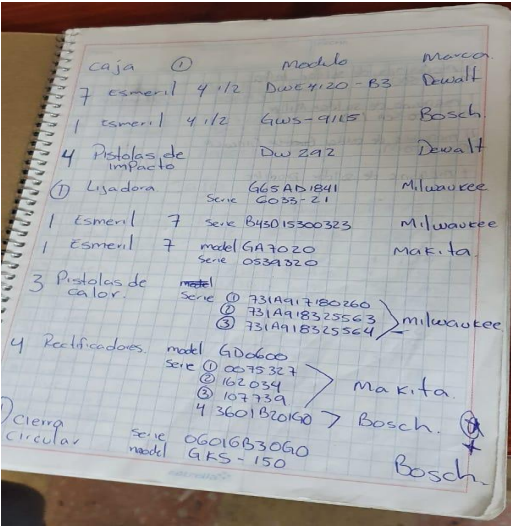 caja ① Modelo Marca
7 Esmeril 4 1/2 DWE4120-B3 Dewalt
1 Esmeril 4 1/2 GWS-9115 Bosch.
4 Pistolas de impacto DW292 Dewalt
① Lijadora G65AD1841 Milwaukee
Serie 6033-21
1 Esmeril 7 Serie B43D15300323 Milwaukee
1 Esmeril 7 model GA7020 Makita.
Serie 0539320
3 Pistolas de calor.
Serie ① 731A917180260
② 731A918325563 milwaukee
③ 731A918325564
4 Rectificadores. model GD0600
Serie ① 0075327
② 162034 Makita.
③ 107739
4 3601B201G0 > Bosch.
① cierra circular Serie 06016B30G0
model GKS-150 Bosch.